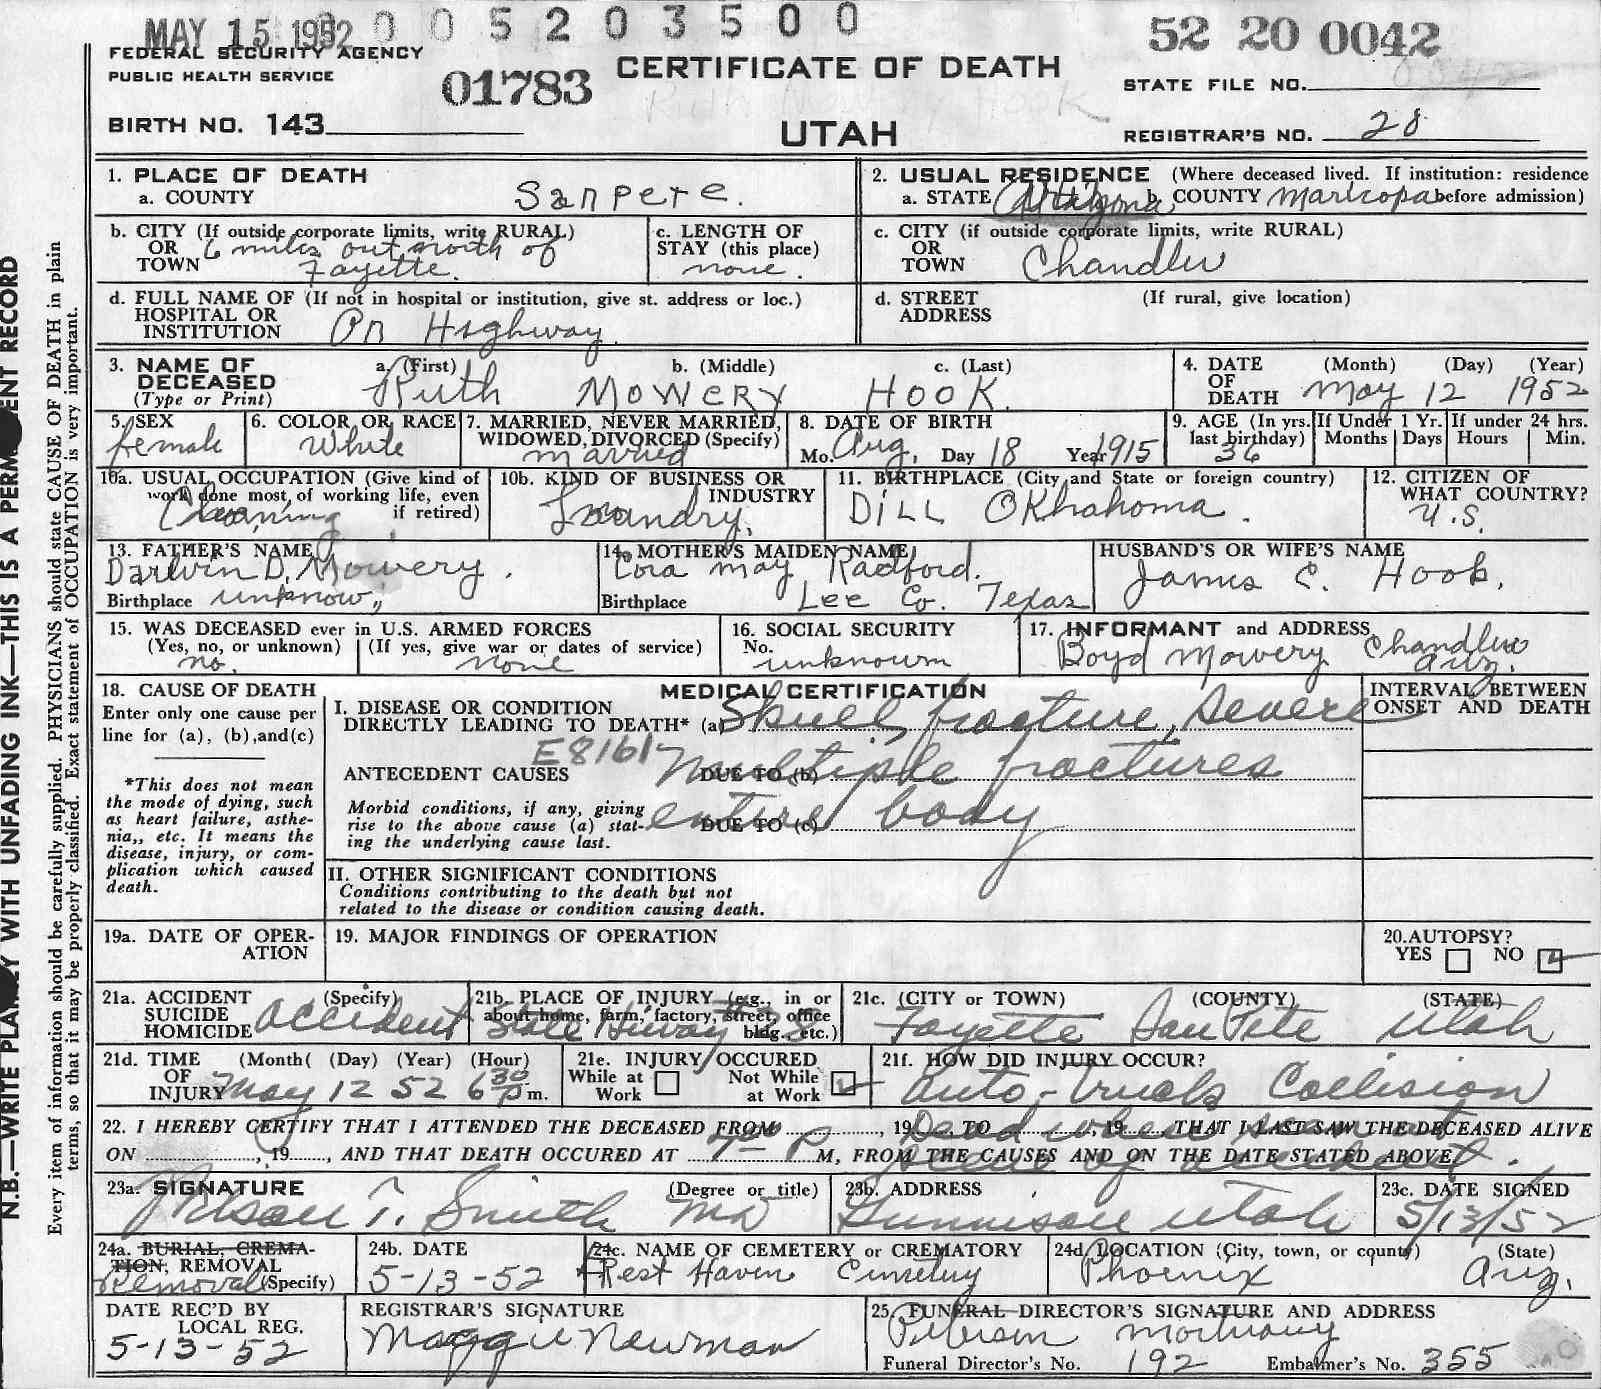 MAY 15 1952 0 0 5 2 0 3 5 0 0
52 20 0042
FEDERAL SECURITY AGENCY
PUBLIC HEALTH SERVICE
01783
CERTIFICATE OF DEATH
STATE FILE NO.
BIRTH NO. 143
UTAH
REGISTRAR'S NO. 28
1. PLACE OF DEATH
a. COUNTY Sanpete.
2. USUAL RESIDENCE (Where deceased lived. If institution: residence
a. STATE Arizona b. COUNTY Maricopa before admission)
b. CITY (If outside corporate limits, write RURAL)
OR
TOWN
6 miles out north of
Fayette.
c. LENGTH OF
STAY (this place)
none.
c. CITY (if outside corporate limits, write RURAL)
OR
TOWN Chandler
d. FULL NAME OF (If not in hospital or institution, give st. address or loc.)
HOSPITAL OR
INSTITUTION On Highway
d. STREET (If rural, give location)
ADDRESS
3. NAME OF DECEASED
(Type or Print)
a. (First) b. (Middle) c. (Last)
Ruth Mowery Hook.
4. DATE OF DEATH
(Month) (Day) (Year)
May 12 1952
5. SEX
female
6. COLOR OR RACE
White
7. MARRIED, NEVER MARRIED,
WIDOWED, DIVORCED (Specify)
married
8. DATE OF BIRTH
Mo. Aug. Day 18 Year 1915
9. AGE (In yrs. last birthday)
36
If Under 1 Yr.
Months Days
If under 24 hrs.
Hours Min.
10a. USUAL OCCUPATION (Give kind of
work done most of working life, even
if retired)
Cleaning
10b. KIND OF BUSINESS OR
INDUSTRY
Laundry.
11. BIRTHPLACE (City and State or foreign country)
Dill Oklahoma.
12. CITIZEN OF
WHAT COUNTRY?
U.S.
13. FATHER'S NAME
Darwin D. Mowery.
Birthplace unknow,,
14. MOTHER'S MAIDEN NAME
Cora may Radford.
Birthplace Lee Co. Texas
HUSBAND'S OR WIFE'S NAME
James C. Hook.
15. WAS DECEASED ever in U.S. ARMED FORCES
(Yes, no, or unknown) (If yes, give war or dates of service)
no. none
16. SOCIAL SECURITY
No. unknown
17. INFORMANT and ADDRESS
Boyd Mowery Chandler
Ariz.
18. CAUSE OF DEATH
Enter only one cause per
line for (a), (b),and(c)
*This does not mean
the mode of dying, such
as heart failure, asthe-
nia,, etc. It means the
disease, injury, or com-
plication which caused
death.
MEDICAL CERTIFICATION
I. DISEASE OR CONDITION
DIRECTLY LEADING TO DEATH* (a) Skull fracture, severe
E8161
ANTECEDENT CAUSES DUE TO (b) Multiple fractures
Morbid conditions, if any, giving
rise to the above cause (a) stat-
ing the underlying cause last.
DUE TO (c) entire body
II. OTHER SIGNIFICANT CONDITIONS
Conditions contributing to the death but not
related to the disease or condition causing death.
INTERVAL BETWEEN
ONSET AND DEATH
19a. DATE OF OPER-
ATION
19. MAJOR FINDINGS OF OPERATION
20.AUTOPSY?
YES NO
21a. ACCIDENT (Specify)
SUICIDE
HOMICIDE accident
21b. PLACE OF INJURY (e.g., in or
about home, farm, factory, street, office
bldg., etc.)
State Hiway
21c. (CITY or TOWN) (COUNTY) (STATE)
Fayette SanPete Utah
21d. TIME (Month( (Day) (Year) (Hour)
OF
INJURY May 12 52 6 30 p m.
21e. INJURY OCCURED
While at Work Not While at Work
21f. HOW DID INJURY OCCUR?
Auto-truck Collision
22. I HEREBY CERTIFY THAT I ATTENDED THE DECEASED FROM , 19 TO , 19 THAT I LAST SAW THE DECEASED ALIVE
Dead when seen at
ON , 19 , AND THAT DEATH OCCURED AT 7 00 P M, FROM THE CAUSES AND ON THE DATE STATED ABOVE.
scene of accident.
23a. SIGNATURE (Degree or title)
T. Smith MD
23b. ADDRESS
Gunnison Utah
23c. DATE SIGNED
5/13/52
24a. BURIAL, CREMA-
TION, REMOVAL
Removal (Specify)
24b. DATE
5-13-52
24c. NAME OF CEMETERY or CREMATORY
Rest Haven Cemetery
24d. LOCATION (City, town, or county) (State)
Phoenix Ariz.
DATE REC'D BY
LOCAL REG.
5-13-52
REGISTRAR'S SIGNATURE
Maggie Newman
25. FUNERAL DIRECTOR'S SIGNATURE AND ADDRESS
Peterson Mortuary
Funeral Director's No. 192 Embalmer's No. 355
N.B.—WRITE PLAINLY WITH UNFADING INK—THIS IS A PERMANENT RECORD
Every item of information should be carefully supplied. PHYSICIANS should state CAUSE OF DEATH in plain
terms, so that it may be properly classified. Exact statement of OCCUPATION is very important.